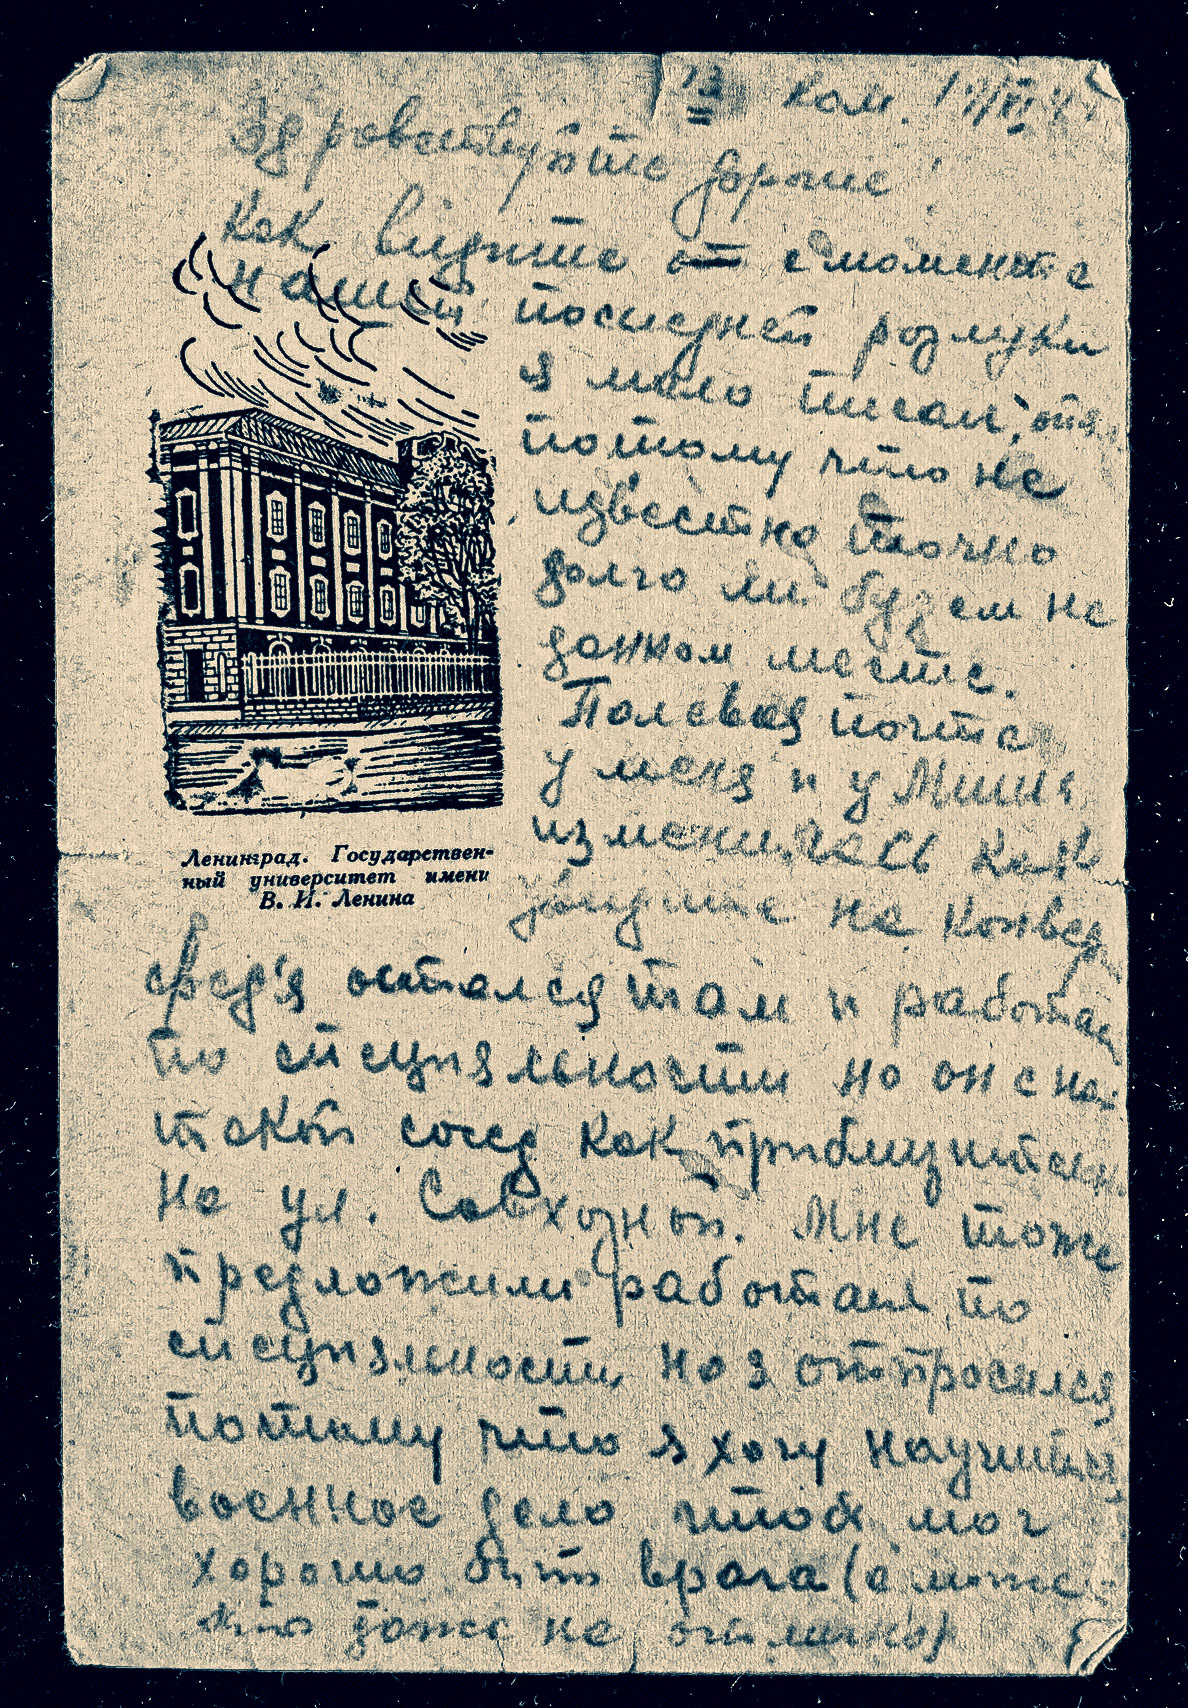 13 Кам.
Здравствуйте дорогие!
Как видите от с момента
нашей последней розлуки
я мало писал,
потому что не
известно точно
долго ли будем на
данном месте.
Полевая почта
у меня и у Миши
изменилась как
увидите на конвер
остался там и работает
по специяльности но он с на
такой сосед как приблизительн.
На ул. Совхозной. Мне тоже
предложили работать по
специяльности, но я отпросился
потому что я хочу научиться
военное дело чтоб мог
хорошо бить врага (а може
даже на отлично)
Ленинград. Государствен-
ный университет имени
В. И. Ленина